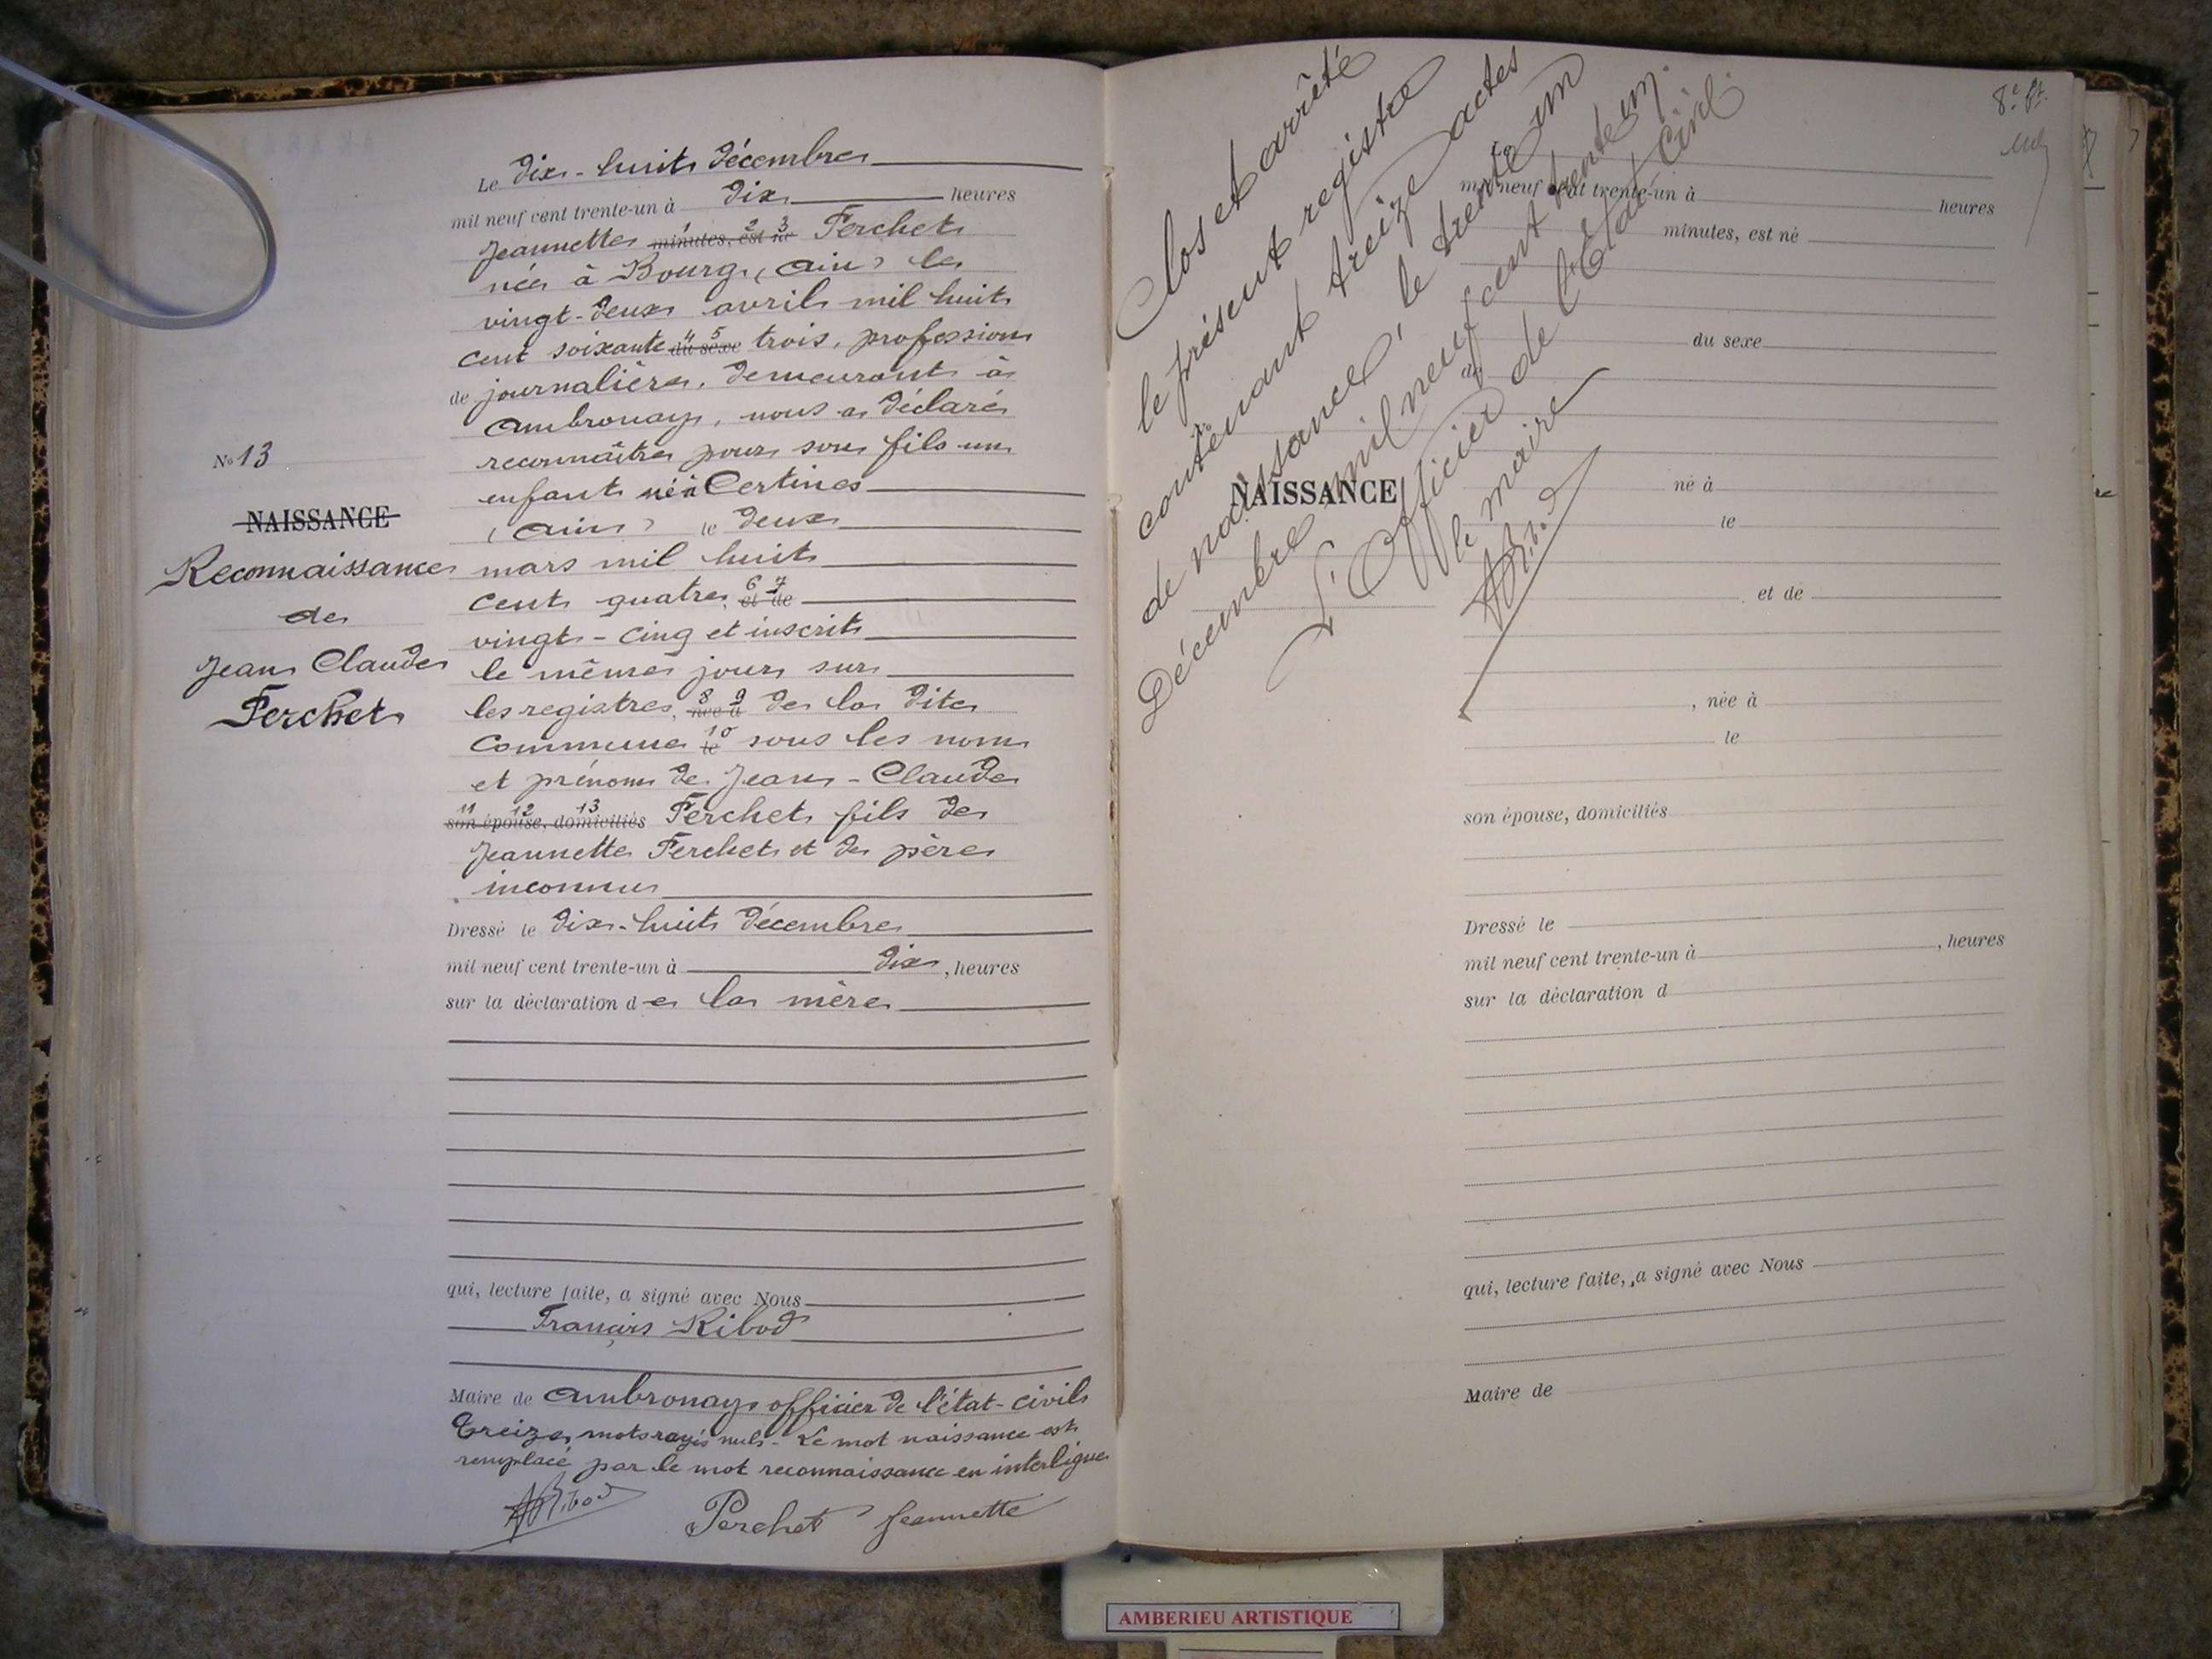 Le dix-huit décembre
mil neuf cent trente-un à dix heures
Jeannette minutes, est né Ferchet
1 2 3
née à Bourg (Ain) le
vingt-deux avril mil huit
cent soixante du sexe trois, profession
4 5
de journalière, demeurant à
Ambronay, nous a déclaré
reconnaître pour son fils un
enfant né à Certines
(Ain) le deux
mars mil huit
cent quatre, et de
6 7
vingt-cinq et inscrit
le même jour sur
les registres, née à de la dite
8 9
commune le sous les nom
10
et prénoms de Jean-Claude
son épouse, domiciliés Ferchet fils de
11 12 13
Jeannette Ferchet et de père
inconnu
Dressé le dix-huit décembre
mil neuf cent trente-un à dix, heures
sur la déclaration de la mère
qui, lecture faite, a signé avec Nous
François Ribod
Maire de Ambronay officier de l'état-civil
Treize mots rayés nuls - Le mot naissance est
remplacé par le mot reconnaissance en interligne
Ribod
Ferchet Jeannette
No 13
NAISSANCE
Reconnaissance
de
Jean Claude
Ferchet
Clos et arrêté
le présent registre
contenant treize actes
de naissance, le trente un
Décembre mil neuf cent trente un.
L'Officier de l'Etat Civil.
le maire
Ribod
8e ft.
Le
mil neuf cent trente-un à heures
minutes, est né
du sexe
de
NAISSANCE
né à
le
et de
, née à
le
son épouse, domiciliés
Dressé le
mil neuf cent trente-un à , heures
sur la déclaration d
qui, lecture faite, a signé avec Nous
Maire de
AMBERIEU ARTISTIQUE